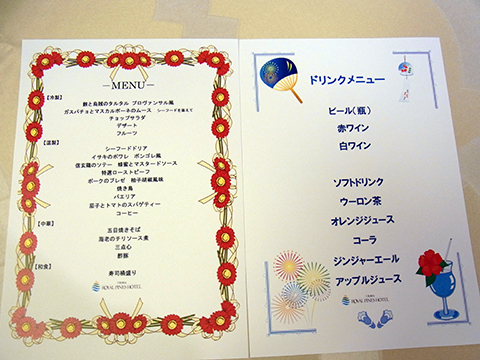 ―MENU―
【冷製】
鯛と烏賊のタルタル プロヴァンサル風
ガスパチョとマスカルポーネのムース シーフードを添えて
チョップサラダ
デザート
フルーツ
【温製】
シーフードドリア
イサキのポワレ ボンゴレ風
信玄鶏のソテー 蜂蜜とマスタードソース
特選ローストビーフ
ポークのブレゼ 柚子胡椒風味
焼き鳥
パエリア
茄子とトマトのスパゲティー
コーヒー
【中華】
五目焼きそば
海老のチリソース煮
三点心
酢豚
【和食】
寿司桶盛り
ROYAL PINES HOTEL
ドリンクメニュー
ビール(瓶)
赤ワイン
白ワイン
ソフトドリンク
ウーロン茶
オレンジジュース
コーラ
ジンジャーエール
アップルジュース
ROYAL PINES HOTEL